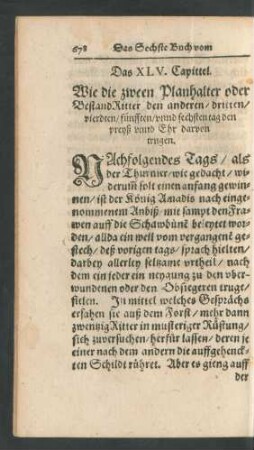 678 Das Sechste Buch vom
Das XLV. Capittel.
Wie die zween Planhalter oder
Bestand Ritter den anderen/ dritten/
vierdten/ fünfften/ vnnd sechsten tag den
preyß vnnd Ehr darvon
trugen.
NAchfolgendes Tags/ als
der Thurnier/ wie gedacht/ wi
derum̃ solt einen anfang gewin
nen/ ist der König Amadis nach ein ge
nommenem Anbiß/ mit sampt den Fra
wen auff die Schawbüne beleytet wor
den/ allda ein weil vom vergangenē ge
stech/ deß vorigen tags/ sprach hielten/
darbey allerley seltzame vrtheil/ nach
dem ein jeder ein neygung zu den vber
wundenen oder den Obsiegeren truge/
fielen. In mittel welches Gesprächs
ersahen sie auß dem Forst/ mehr dann
zwentzig Ritter in mutiger Rüstung/
sich zuversuchen/ herfür lassen/ deren je
einer nach dem andern die auffgehenck
ten Schildt rühret. Aber es gieng auff
der